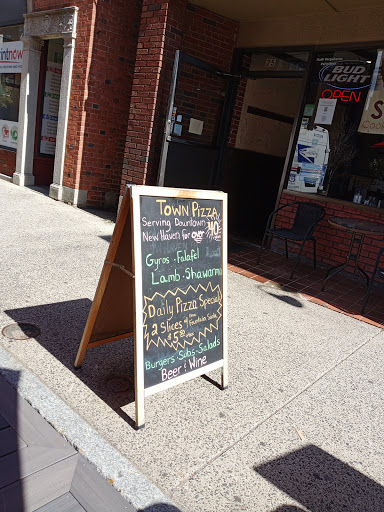 rintnow
BUD
LIGHT
OPEN
TOWN PIZZA
Serving Downtown
New Haven for over 40
Gyros - Falafel
Lamb - Shawarma
Daily Pizza Special
2 Slices & Fountain Soda
$5
Burgers · Subs · Salads
Beer & Wine